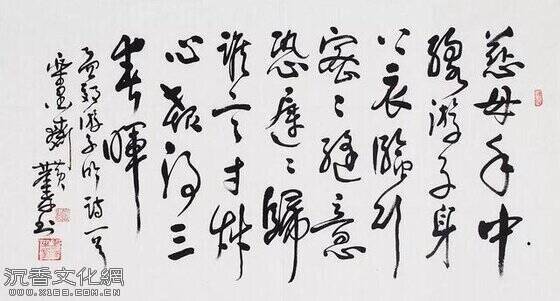 慈母手中
線游子身
上衣臨行
密〻縫意
恐遲〻歸
誰言寸艸
心報得三
春暉
孟郊游子吟詩一首
书
沉香文化網